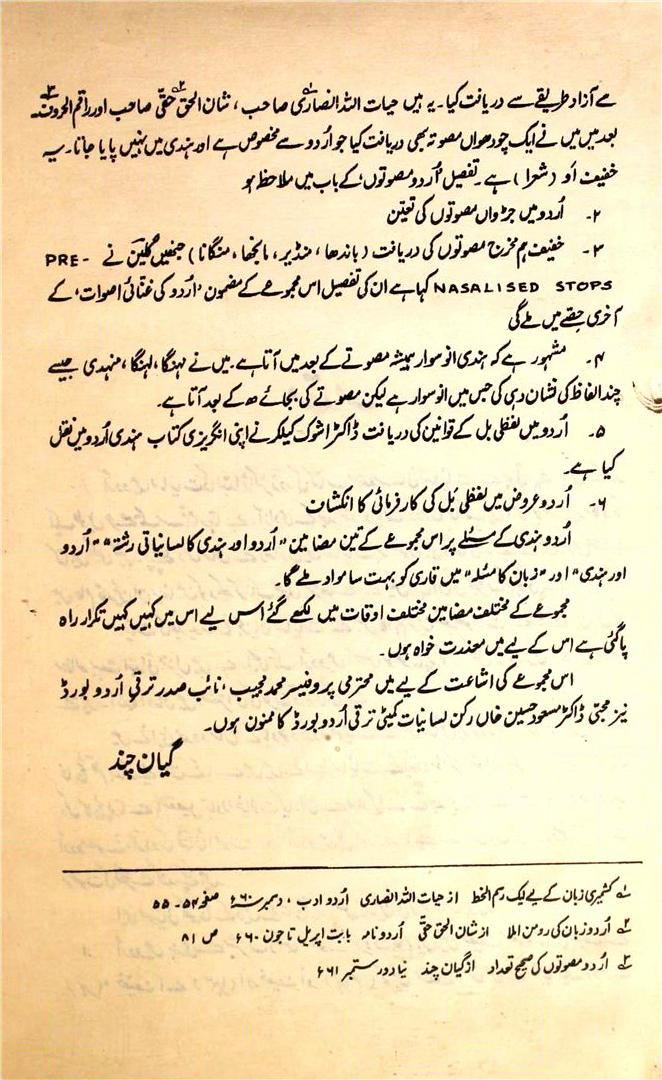 سے آزاد طریقے سے دریافت کیا۔ یہ ہیں حیات اللہ انصاری۱؎ صاحب، شان الحق۲؎ حقی صاحب اور راقم الحروف۔۳؎
بعد میں میں نے ایک چودھواں مصوتہ بھی دریافت کیا جو اُردو سے مخصوص ہے اور ہندی میں نہیں پایا جاتا۔ یہ
خفیف اَو (شعرا) ہے۔ تفصیل 'اُردو مصوتوں' کے باب میں ملاحظ ہو
۲۔ اُردو میں جڑواں مصوتوں کی تعین
۳۔ خفیف ہم مخرج مصوتوں کی دریافت (باندھا، منڈیر، مانجھا، منگانا) جنھیں گلیسن نے PRE-
NASALISED STOPS کہا ہے ان کی تفصیل اس مجموعے کے مضمون 'اُردو کی غنائی اصوات' کے
آخری حصّے میں ملے گی
۴۔ مشہور ہے کہ ہندی انوسوار ہمیشہ مصوتے کے بعد میں آتا ہے۔ میں نے نہنگا، لہنگا، منہدی جیسے
چند الفاظ کی نشان دہی کی جس میں انوسوار ہے لیکن مصوتے کی بجائے ھ کے بعد آتا ہے۔
۵۔ اُردو میں لفظی بل کے قوانین کی دریافت ڈاکٹر اشوک کیلکر نے اپنی انگریزی کتاب ہندی اُردو میں نقل
کیا ہے۔
۶۔ اُردو عروض میں لفظی بَل کی کارفرمائی کا انکشات
اُردو ہندی کے مسئلے پر اس مجموعے کے تین مضامین "اُردو اور ہندی کا لسانیاتی رشتہ" "اُردو
اور ہندی" اور "زبان کا مسئلہ" میں قاری کو بہت سا مواد ملے گا۔
مجموعے کے مختلف مضامین مختلف اوقات میں لکھے گئے اس لیے اس میں کہیں کہیں تکرار راہ
پاگئی ہے اس کے لیے میں معذرت خواہ ہوں۔
اس مجموعے کی اشاعت کے لیے میں محترمی پروفیسر محمد مجیب، نائب صدر ترقیِ اُردو بورڈ
نیز محبّی ڈاکٹر مسعود حسین خاں رکن لسانیات کمیٹی ترقی اُردو بورڈ کا ممنون ہوں۔
گیان چند
۱؎ کشمیری زبان کے لیے ایک رسم الخط از حیات اللہ انصاری اُردو ادب، دسمبر ۶۰ء صفحہ ۵۴۔۵۵
۲؎ اُردو زبان کی رومن املا از شان الحق حقی اُردو نامہ بابت اپریل تا جون ۶۶۰ ص ۸۱
۳؎ اُردو مصوتوں کی صحیح تعداد از گیان چند نیا دور ستمبر ۶۶۱